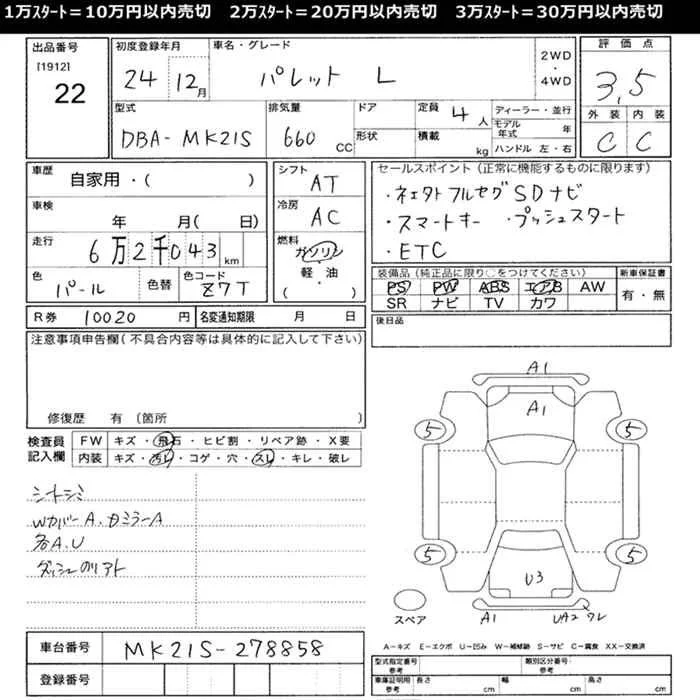 1万ｽﾀｰﾄ＝10万円以内売切　2万ｽﾀｰﾄ＝20万円以内売切　3万ｽﾀｰﾄ＝30万円以内売切
出品番号
[1912]
22
初度登録年月
24 12月
車名・グレード
パレット L
2WD
・
4WD
評価点
3,5
外装 内装
C C
型式
DBA-MK21S
排気量
660 CC
ドア
形状
定員 4人
積載 kg
ディーラー・並行
モデル年式 年
ハンドル 左・右
車歴
自家用・( )
車検
年 月( 日)
走行
6万2千043 km
色
パール
色替
色コード
Z7T
シフト
AT
冷房
AC
燃料
ガソリン
軽・油
( )
セールスポイント（正常に機能するものに限ります）
・スマートキー ・プッシュスタート
・ETC
装備品（純正品に限り○をつけてください）
PS PW ABS エアB AW
SR ナビ TV カワ
新車保証書
有・無
R券 10020 円
名変通知期限 月 日
後日品
注意事項申告欄（不具合内容等は具体的に記入して下さい）
修復歴 有（箇所 ）
検査員
記入欄
FW キズ・飛石・ヒビ割・リペア跡・X要
内装 キズ・汚れ・コゲ・穴・スレ・キレ・破レ
シートシミ
Wカバー A、カミラーA
各A.U
A1
A1
5 5
5 5
U3
スペア
A1 UA2 ワレ
車台番号 MK21S-278858
登録番号
A－キズ E－エクボ U－凹み W－補修跡 S－サビ C－腐食 XX－交換済
型式指定番号
参考
類別区分番号
参考
車庫証明用
参考
長さ cm 幅 cm 高さ cm